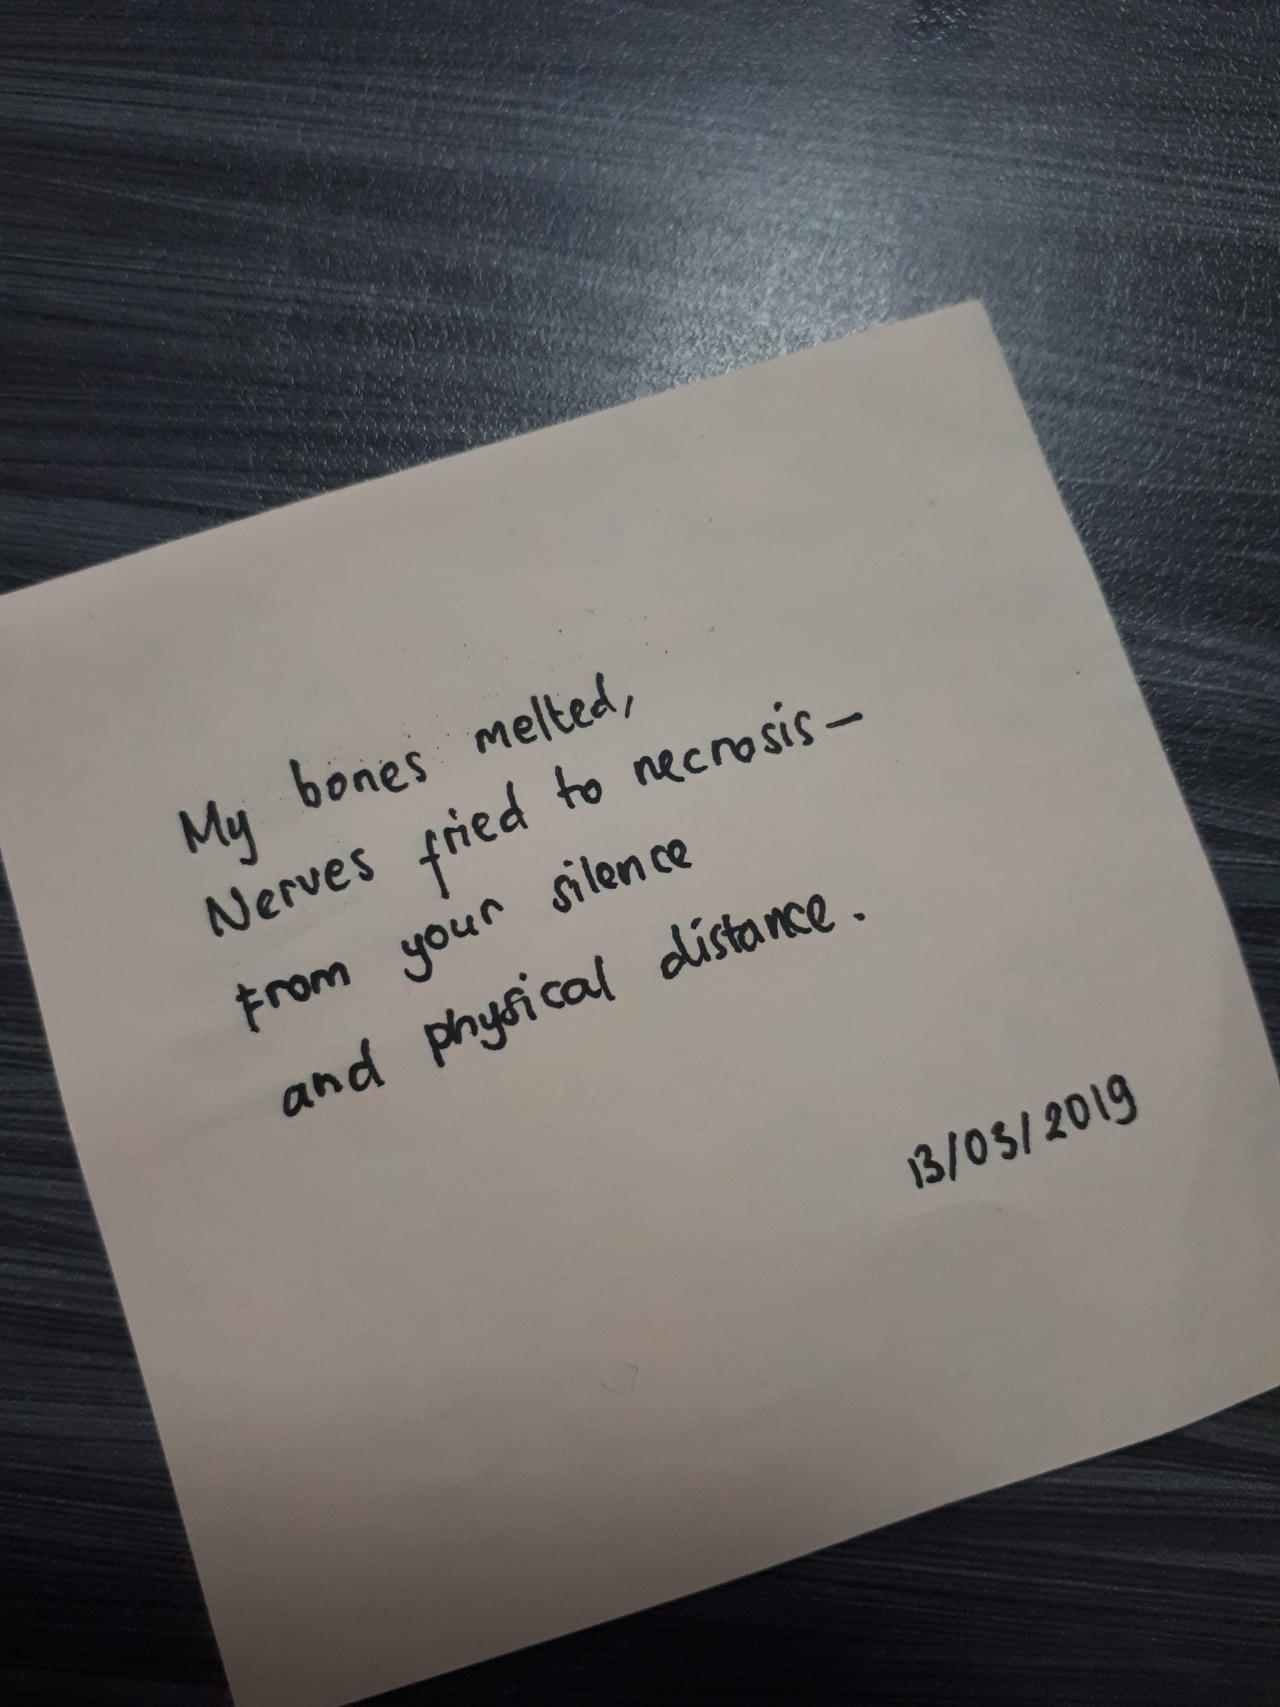 My bones melted,
Nerves fried to necrosis—
from your silence
and physical distance.
13/03/2019